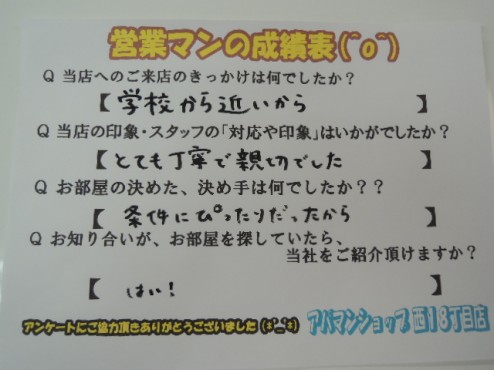 営業マンの成績表(^o^)
Q 当店へのご来店のきっかけは何でしたか？
【学校から近いから】
Q 当店の印象・スタッフの「対応や印象」はいかがでしたか？
【とても丁寧で親切でした】
Q お部屋の決めた、決め手は何でしたか？？
【条件にぴったりだったから】
Q お知り合いが、お部屋を探していたら、
当社をご紹介頂けますか？
【はい！】
アンケートにご協力頂きありがとうございました(*^_^*)
アパマンショップ西18丁目店